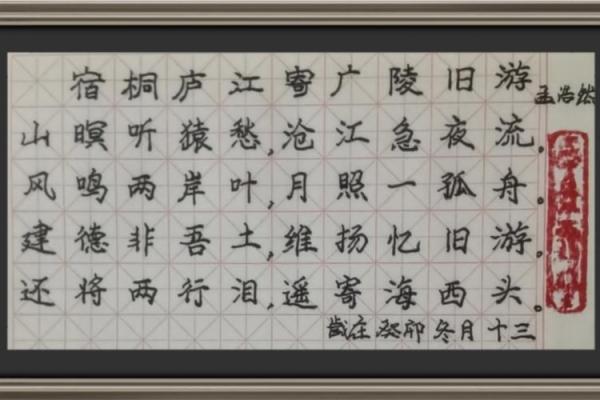 宿桐庐江寄广陵旧游
孟浩然
山暝听猿愁,沧江急夜流。
风鸣两岸叶,月照一孤舟。
建德非吾土,维扬忆旧游。
还将两行泪,遥寄海西头。
岁在癸卯冬月十三